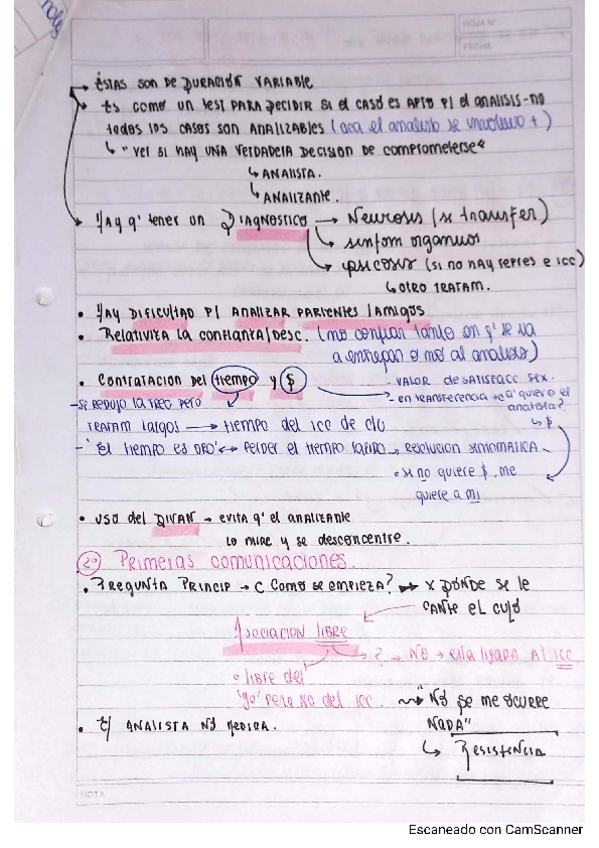 HOJA Nº
FECHA
→ ÉSTAS SON DE DURACIÓN VARIABLE
→ ES COMO UN TEST PARA DECIDIR SI EL CASO ES APTO P/ EL ANALISIS - NO
TODOS LOS CASOS SON ANALIZABLES (acá el analista se involucra +)
↳ "VER SI HAY UNA VERDADERA DECISION DE COMPROMETERSE"
↳ ANALISTA.
↳ ANALIZANTE.
→ HAY Q' TENER UN DIAGNOSTICO → NEUROSIS (SI TRANSFER)
↳ SINTOM ORGANICOS
↳ PSICOSIS (SI NO HAY REPRES E ICC)
↳ OTRO TRATAM.
• HAY DIFICULTAD P/ ANALIZAR PARIENTES / AMIGOS
• RELATIVIZA LA CONFIANZA/DESC. (no confiar tanto en q' se va
a entregar o no al analisis)
• CONTRATACION DEL tiempo y $
- VALOR DE SATISFACC SEX.
- EN TRANSFERENCIA → ¿q' quiere el
analista?
↳ $
- SE REDUJO LA FREC PERO
TRATAM LARGOS → TIEMPO DEL ICC DE C/U
- "EL TIEMPO ES ORO" ↔ PERDER EL TIEMPO → RESOLUCION SINTOMATICA
• SI NO QUIERE $, ME
QUIERE A MI
• USO DEL DIVAN → EVITA Q' EL ANALIZANTE
LO MIRE Y SE DESCONCENTRE.
2º PRIMERAS COMUNICACIONES.
• PREGUNTA PRINCIP → ¿COMO SE EMPIEZA? → X DONDE SE LE
CANTE EL CULO
ASOCIACION LIBRE
→ ? → NO → ESTA LIGADA AL ICC
• LIBRE DEL
"YO" PERO NO DEL ICC. → "NO SE ME OCURRE
NADA"
• E/ ANALISTA NO
↳ RESISTENCIA
NOTA
Escaneado con CamScanner